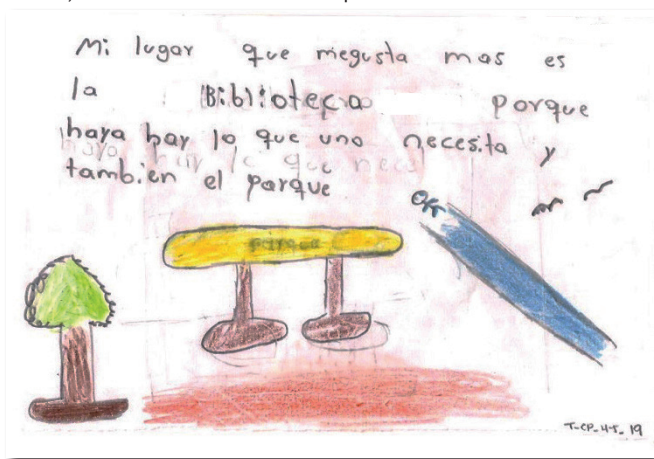 Mi lugar que megusta mas es
la Biblioteca porque
haya hay lo que uno necesita y
tambien el parque
parque
T-CP-4T-19